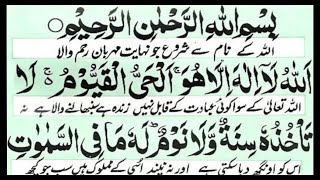 بِسْمِ اللهِ الرَّحْمٰنِ الرَّحِيْمِ
اللہ کے نام سے شروع جو نہایت مہربان رحم والا
اَللهُ لَآ اِلٰهَ اِلَّا هُوَ ۚ اَلْحَيُّ الْقَيُّوْمُ ۚ لَا
اللہ تعالیٰ کے سوا کوئی عبادت کے قابل نہیں زندہ ہے سنبھالنے والا ہے نہ
تَاْخُذُهٗ سِنَةٌ وَّلَا نَوْمٌ ؕ لَهٗ مَا فِي السَّمٰوٰتِ
اس کو اونگھ دبا سکتی ہے اور نہ نیند اسی کے مملوک ہیں سب جو کچھ